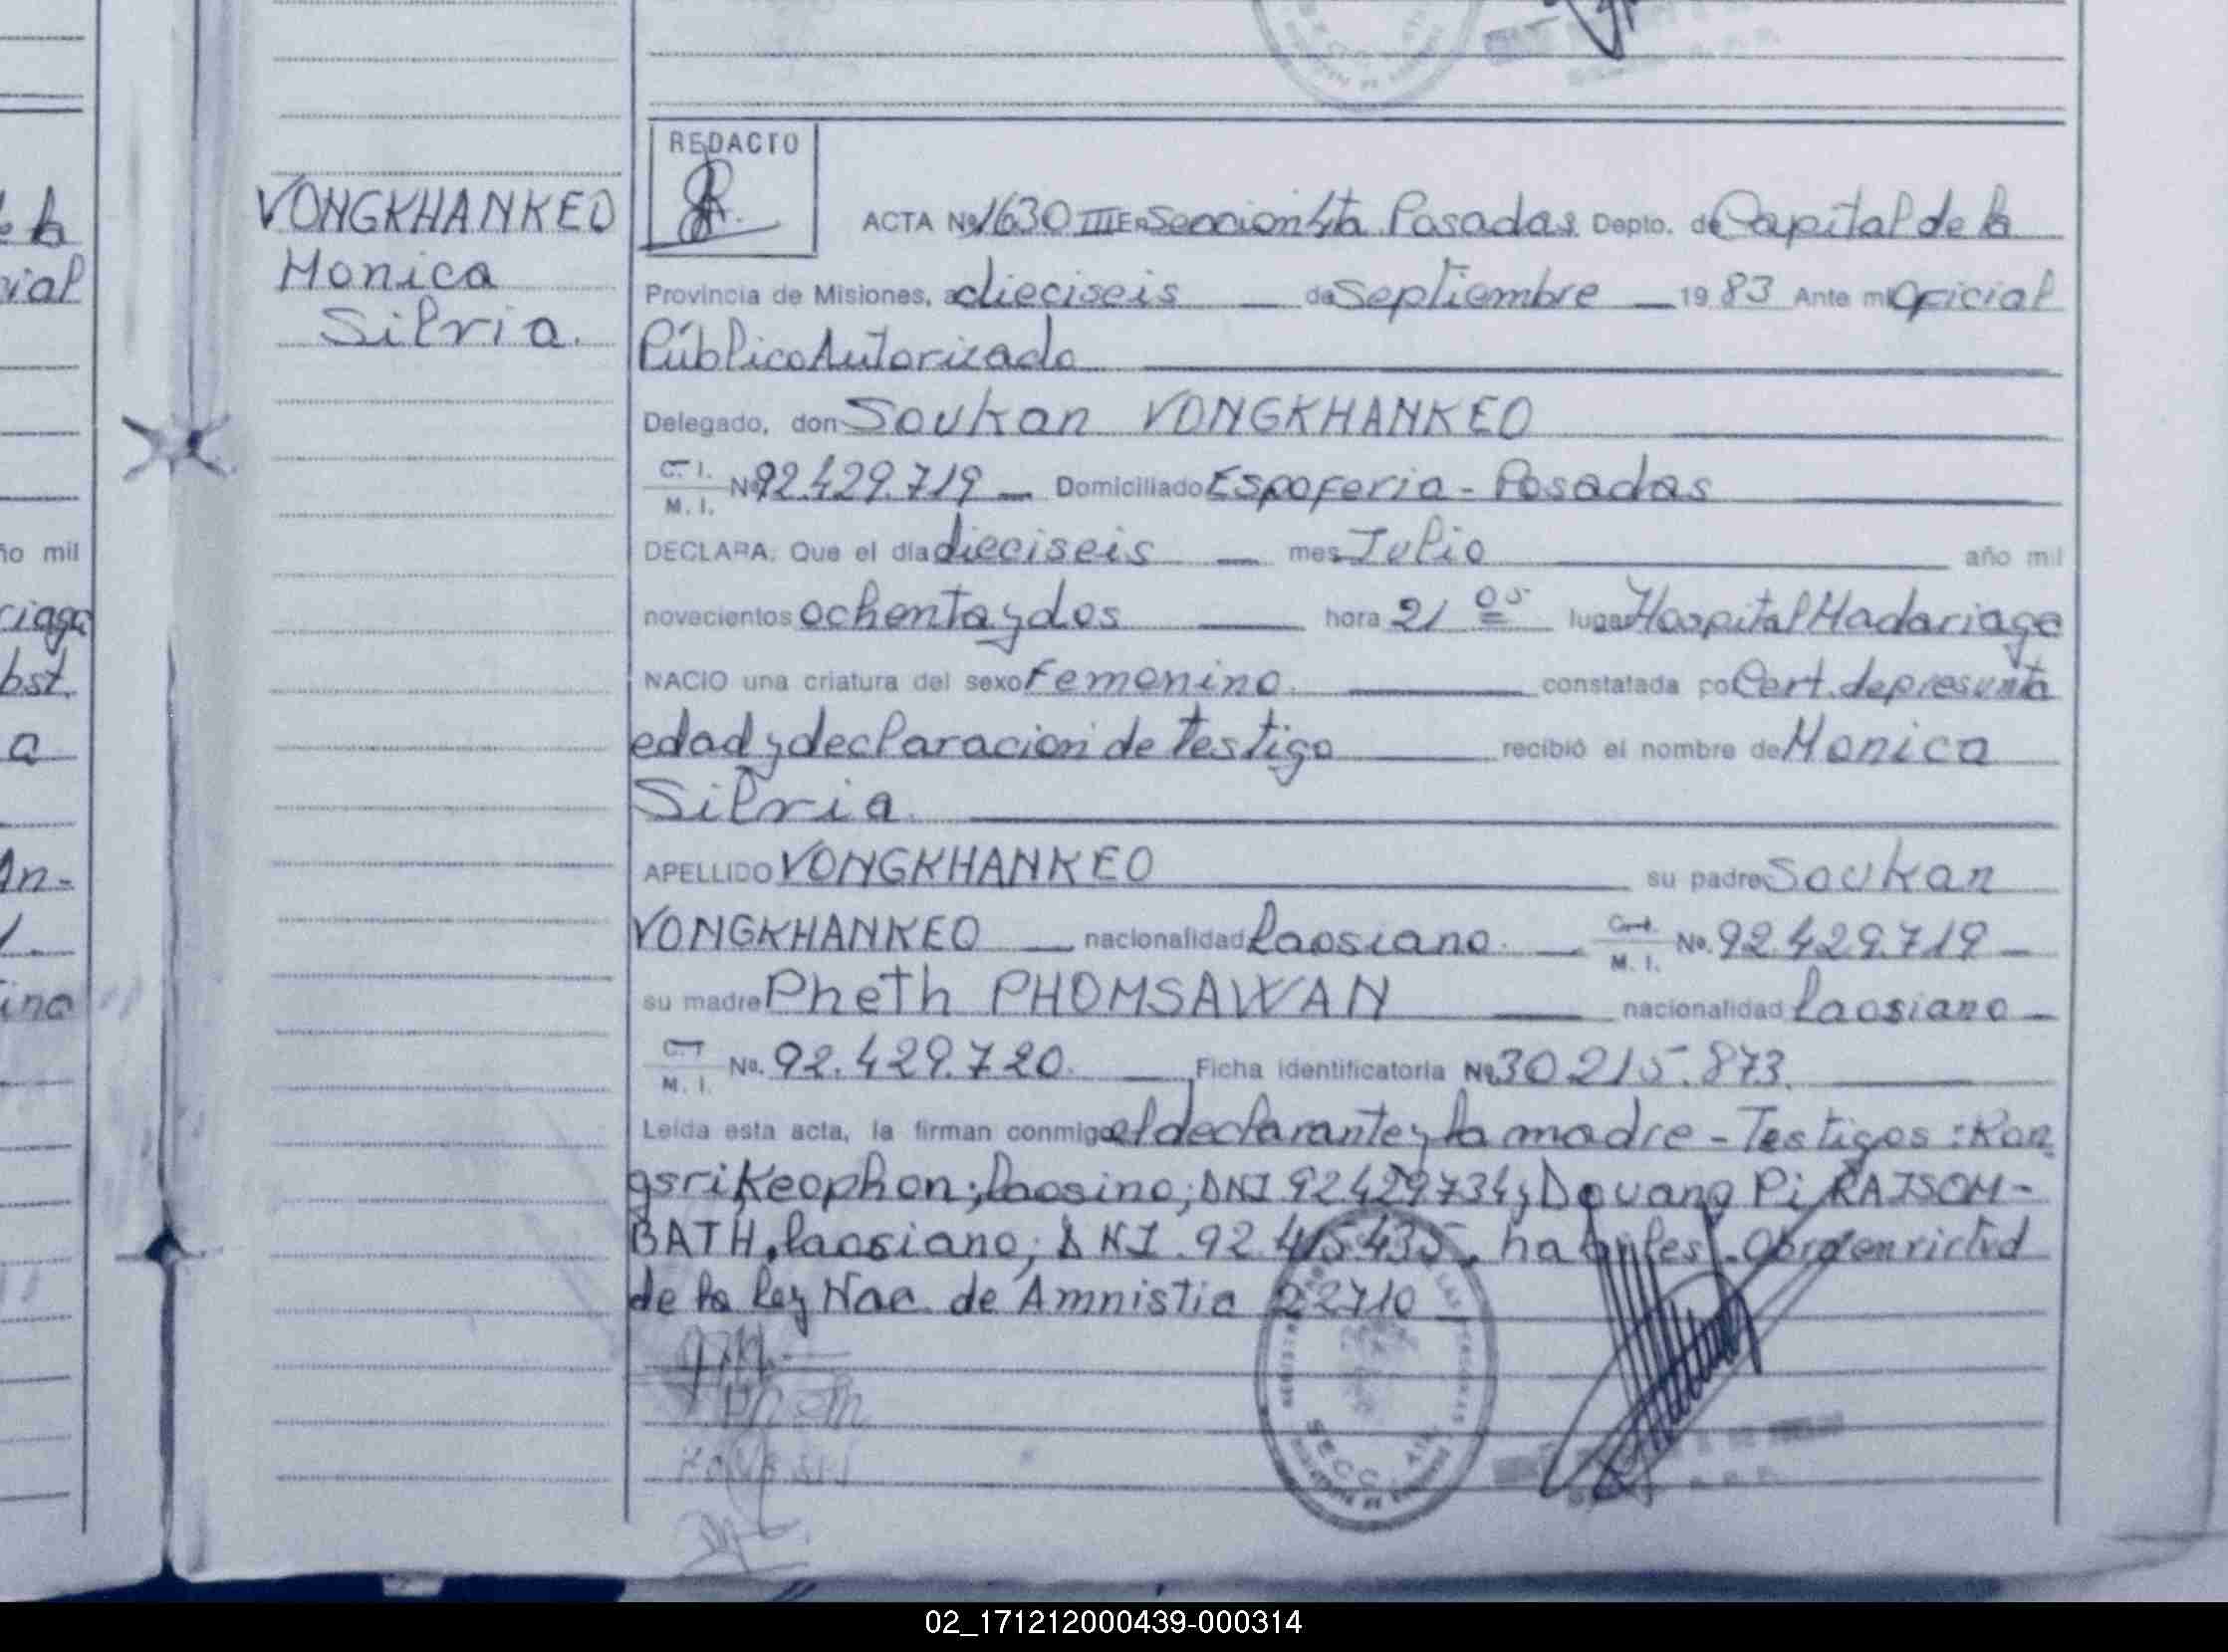 VONGKHANKEO
Monica
Silvia.
REDACTO
ACTA Nº 1630 IIIEr Seccion 4ta Posadas Depto. de Capital de la
Provincia de Misiones, a dieciseis de Septiembre 1983 Ante mi Oficial
Público Autorizado
Delegado, don Soukan VONGKHANKEO
C. I.
M. I.
Nº 92.429.719 Domiciliado Expoferia - Posadas
DECLARA: Que el día dieciseis mes Julio año mil
novecientos ochenta y dos hora 21 05 lugar Hospital Madariaga
NACIO una criatura del sexo Femenino. constatada por Cert. de presunta
edad y declaracion de testigo recibió el nombre de Monica
Silvia.
APELLIDO VONGKHANKEO su padre Soukan
VONGKHANKEO nacionalidad laosiano. M. I. No. 92.429.719
su madre Pheth PHOMSAWAN nacionalidad laosiano
M. I. No. 92.429.720. Ficha identificatoria Nº 30215.873.
Leída esta acta, la firman conmigo el declarante y la madre - Testigos: Kon
gsrikeophon; laosino; DNI 92429734 y Douang Pi RAJSOM-
BATH, laosiano; DNI 92.415.435, habiles. Obra en virtud
de la Ley Nac. de Amnistia 22710
ño mil
riaga
bst.
a
02_171212000439-000314